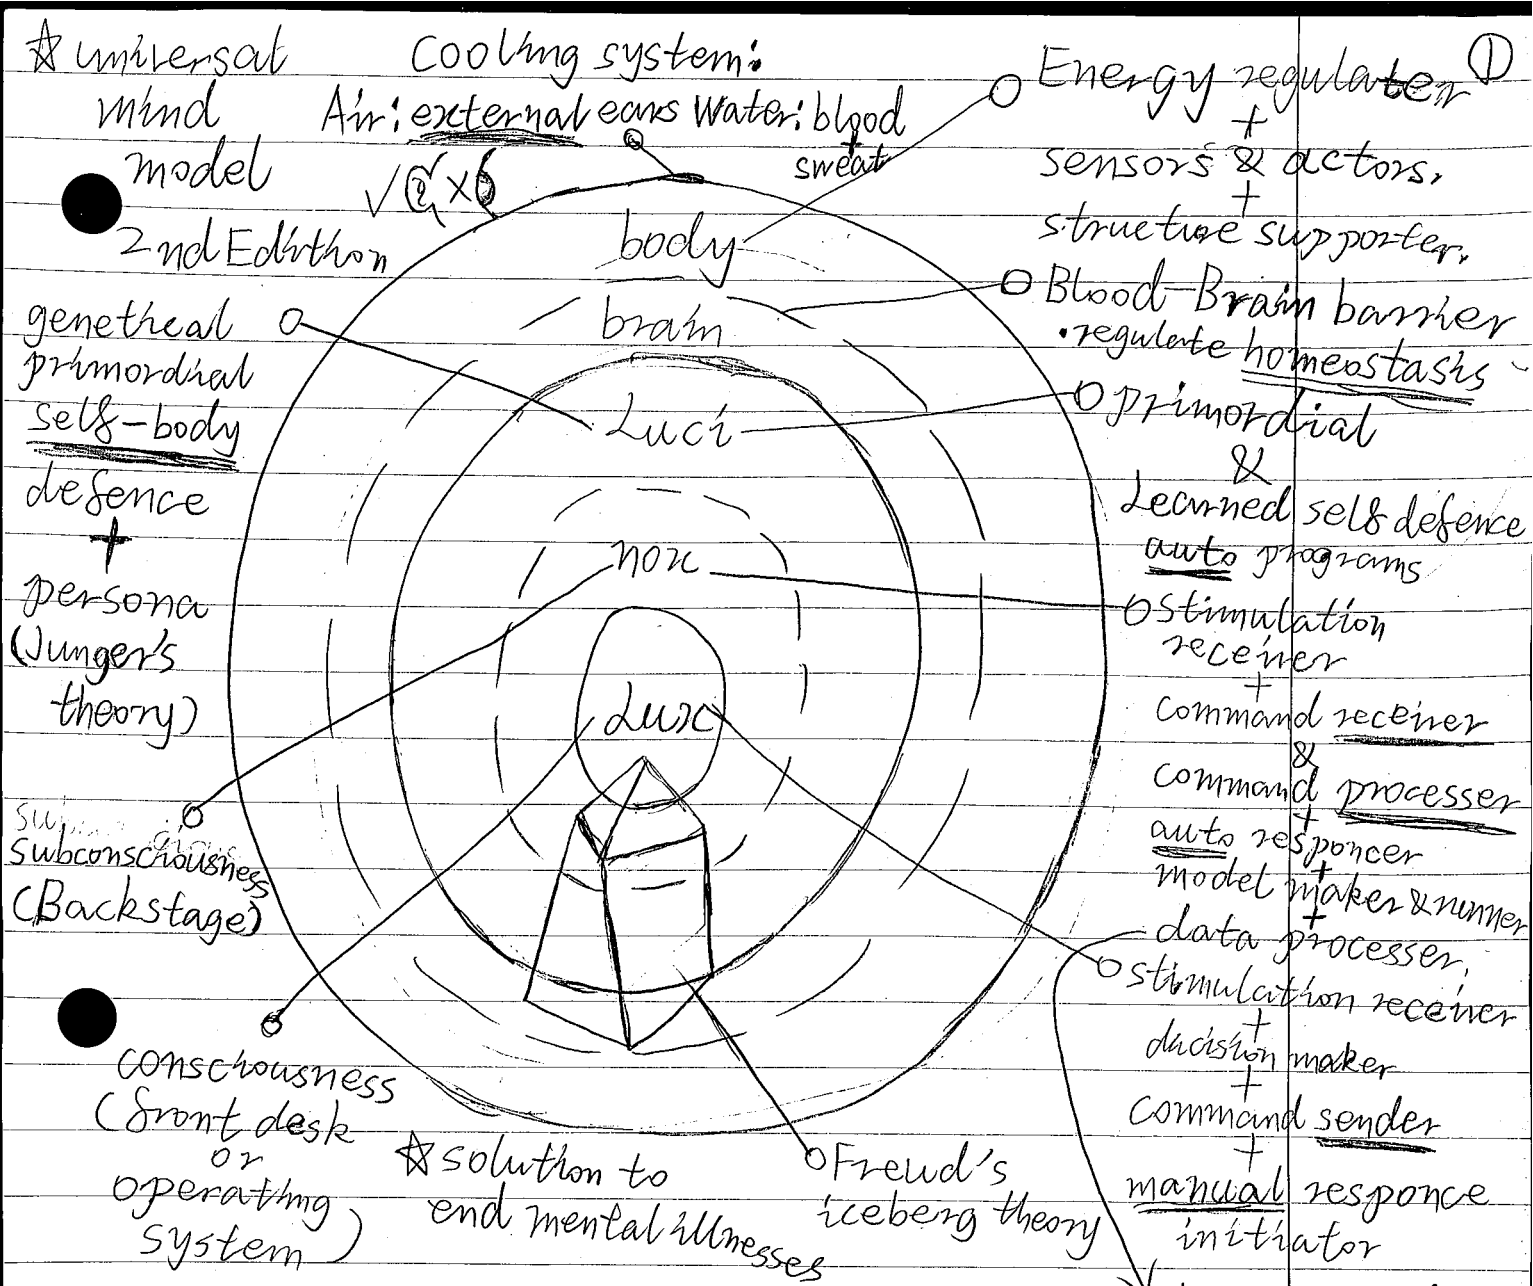 ☆ universal
mind
model
2nd Edithon
Cooling system:
Air: external ears Water: blood
+
sweat
①
Energy regulater
+
sensors & actors,
+
structure supporter,
Blood-Brain barrier
• regulate homeostasis
primordial
&
Learned self defence
auto programs
stimulation
receiver
+
command receiver
&
command processer
+
auto responcer
+
model maker & runner
+
data processer,
stimulation receiver
+
decision maker
+
command sender
+
manual responce
initiator
body
brain
Luci
nox
Lux
genetical
primordial
self-body
defence
+
persona
(Junger's
theory)
subconsciousness
(Backstage)
consciousness
(front desk
or
operating
system)
☆ solution to
end mental illnesses
Freud's
iceberg theory